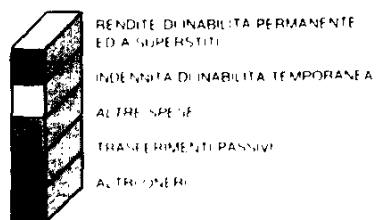 RENDITE DI INABILITA PERMANENTE
ED A SUPERSTITI
INDENNITA DI INABILITA TEMPORANEA
ALTRE SPESE
TRASFERIMENTI PASSIVI
ALTRI ONERI